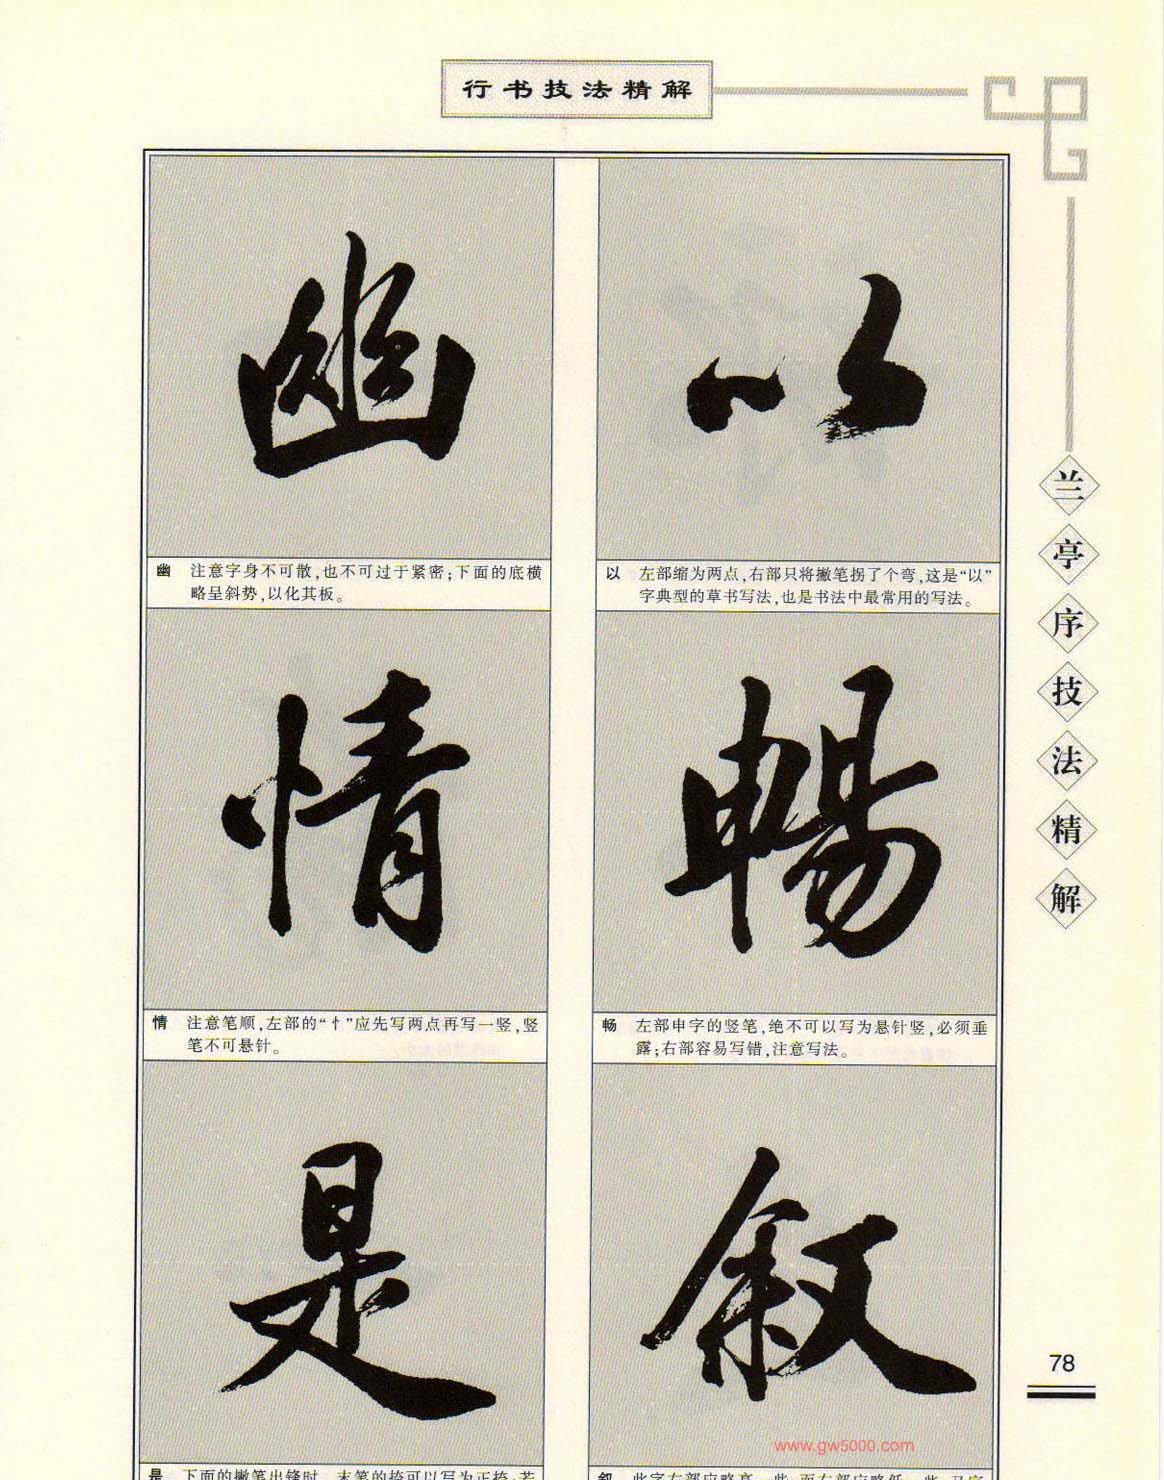 行书技法精解
幽
以
幽 注意字身不可散,也不可过于紧密;下面的底横
略呈斜势,以化其板。
以 左部缩为两点,右部只将撇笔拐了个弯,这是“以”
字典型的草书写法,也是书法中最常用的写法。
情
暢
情 注意笔顺,左部的“忄”应先写两点再写一竖,竖
笔不可悬针。
畅 左部申字的竖笔,绝不可以写为悬针竖,必须垂
露;右部容易写错,注意写法。
是
叙
是 下面的撇笔出锋时,末笔的捺可以写为正捺;若
叙 此字左部应略高一些,而右部应略低一些,又字
兰亭序技法精解
78
www.gw5000.com